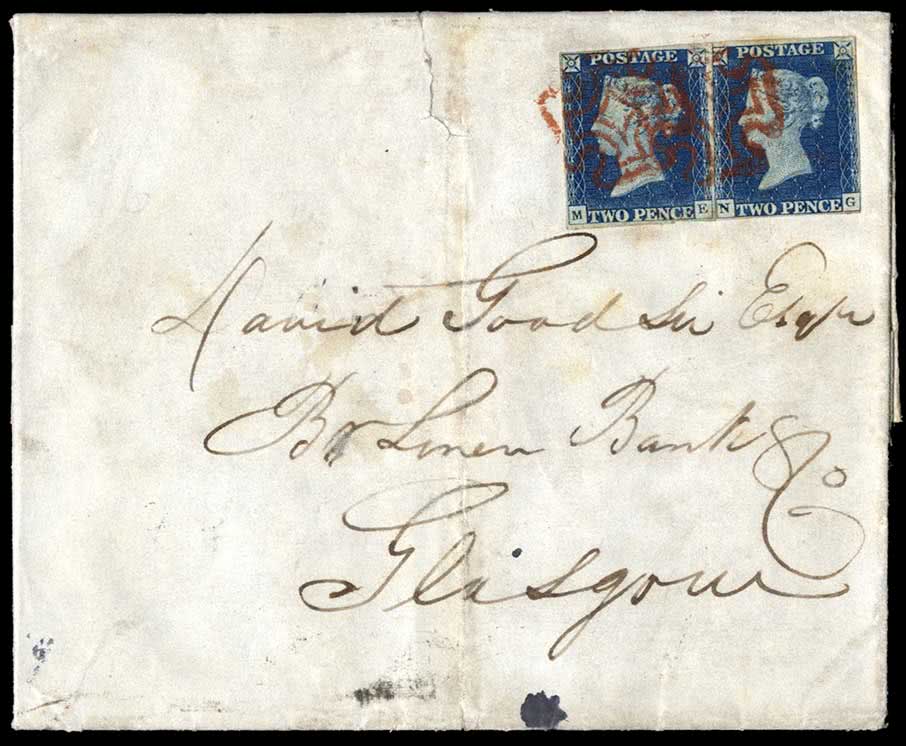 POSTAGE POSTAGE
M TWO PENCE E N TWO PENCE G
David Good Sir Esqr
Br Linen Bank Co
Glasgow